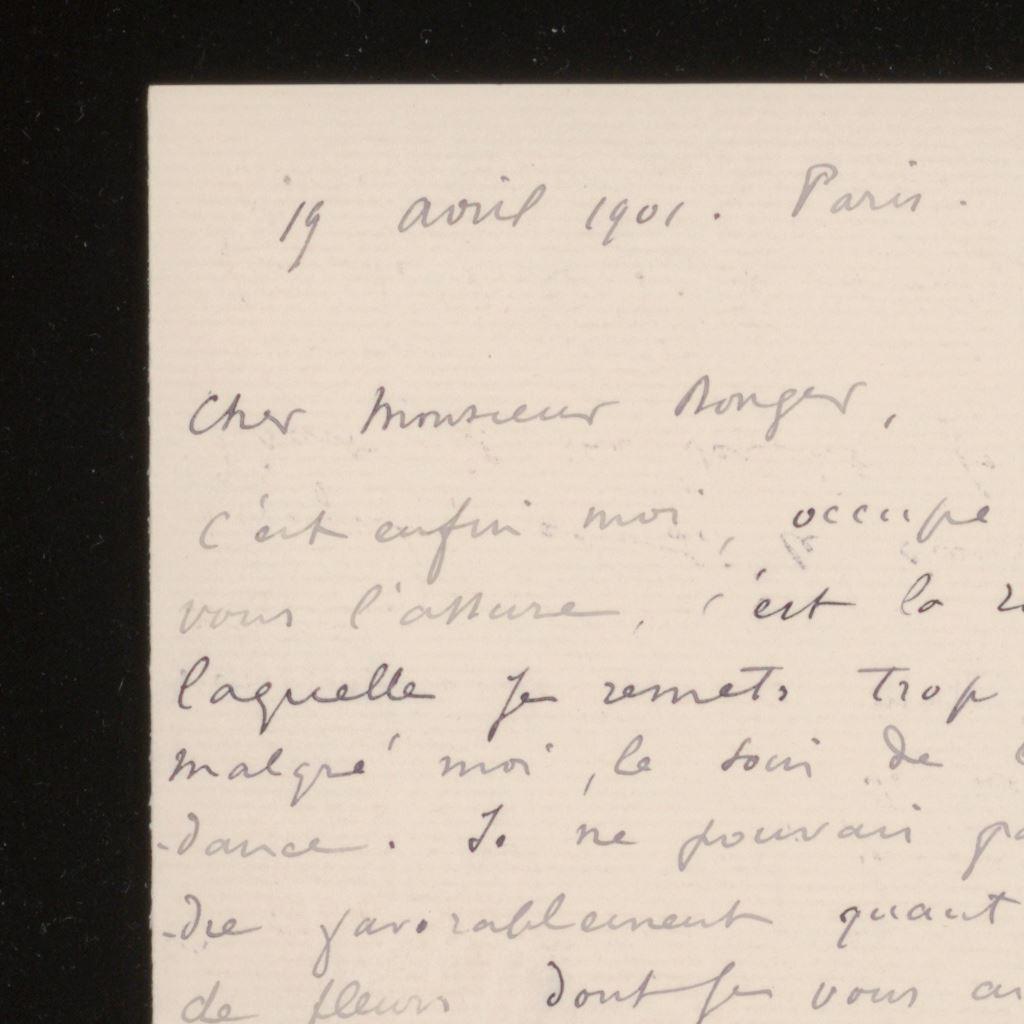 19 avril 1901. Paris.
Cher Monsieur Bonger,
c'est enfin moi, occupé
vous l'assure, c'est la
laquelle je remets trop
malgré moi, le soin de
-dance. Je ne pouvais
-dre favorablement quant
de fleurs dont je vous